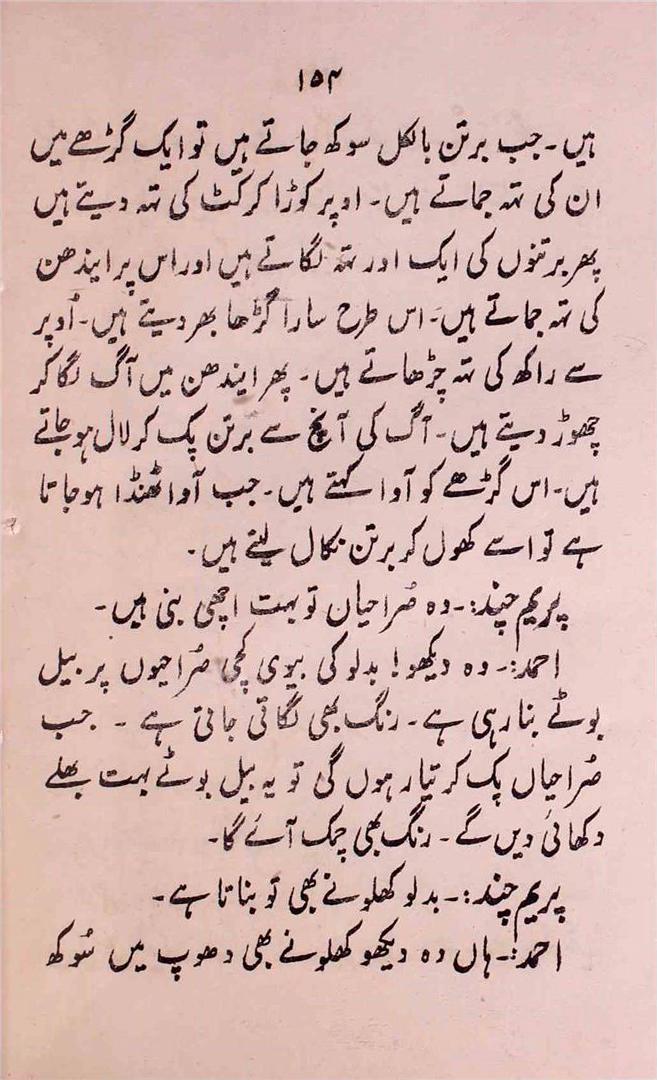 ۱۵۴
ہیں۔ جب برتن بالکل سوکھ جاتے ہیں تو ایک گڑھے میں
ان کی تہ جماتے ہیں۔ اوپر کوڑا کرکٹ کی تہ دیتے ہیں
پھر برتنوں کی ایک اور تہ لگاتے ہیں اور اس پر ایندھن
کی تہ جماتے ہیں۔ اس طرح سارا گڑھا بھر دیتے ہیں۔ اُوپر
سے راکھ کی تہ چڑھاتے ہیں۔ پھر ایندھن میں آگ لگا کر
چھوڑ دیتے ہیں۔ آگ کی آنچ سے برتن پک کر لال ہو جاتے
ہیں۔ اس گڑھے کو آوا کہتے ہیں۔ جب آوا ٹھنڈا ہو جاتا
ہے تو اسے کھول کر برتن نکال لیتے ہیں۔
پریم چند:۔ وہ صُراحیاں تو بہت اچھی بنی ہیں۔
احمد:۔ وہ دیکھو! بدلو کی بیوی کچی صُراحیوں پر بیل
بوٹے بنا رہی ہے۔ رنگ بھی لگاتی جاتی ہے ۔ جب
صُراحیاں پک کر تیار ہوں گی تو یہ بیل بوٹے بہت بھلے
دکھائی دیں گے۔ رنگ بھی چمک آئے گا۔
پریم چند:۔ بدلو کھلونے بھی تو بناتا ہے۔
احمد:۔ ہاں وہ دیکھو کھلونے بھی دھوپ میں سُوکھ